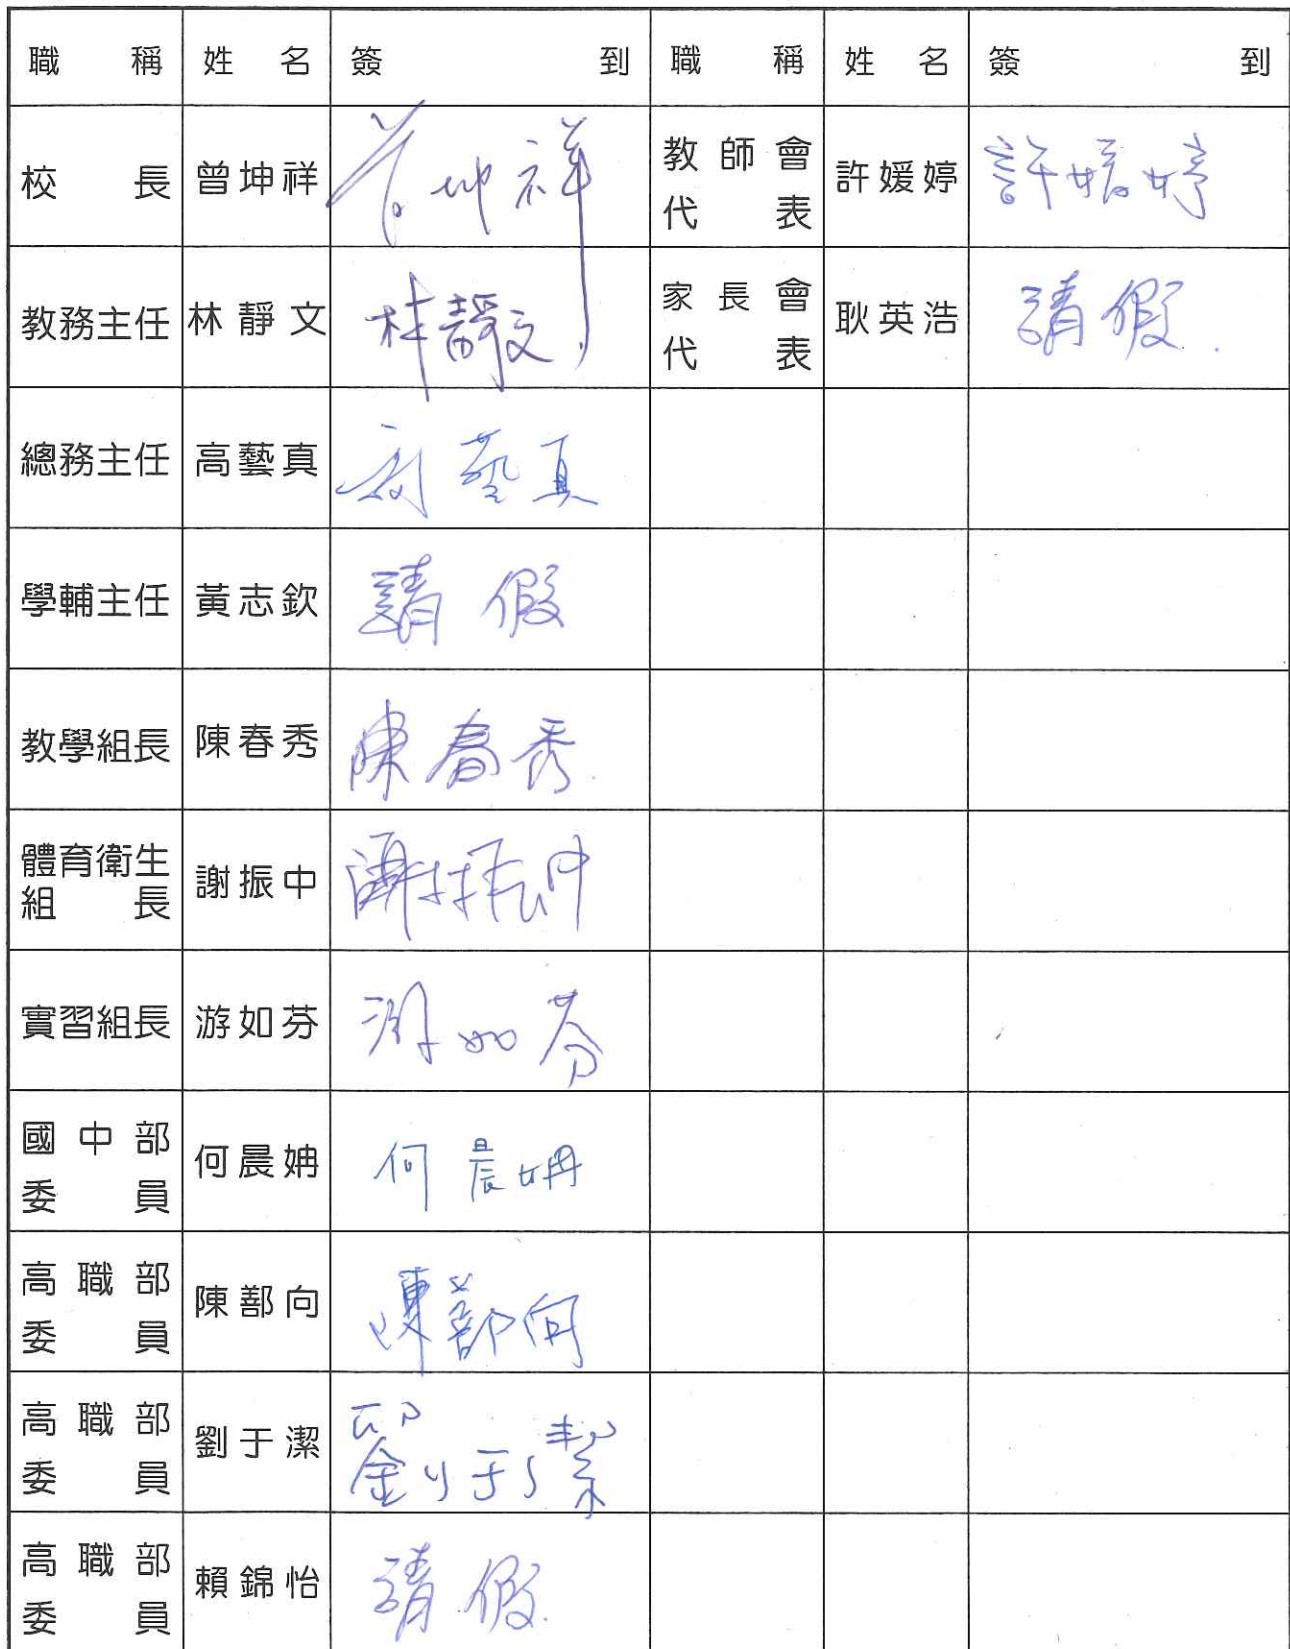 職稱 姓名 簽到 職稱 姓名 簽到
校長 曾坤祥 曾坤祥 教師會代表 許媛婷 許媛婷
教務主任 林靜文 林靜文 家長會代表 耿英浩 請假
總務主任 高藝真 高藝真
學輔主任 黃志欽 請假
教學組長 陳春秀 陳春秀
體育衛生組長 謝振中 謝振中
實習組長 游如芬 游如芬
國中部委員 何晨姌 何晨姌
高職部委員 陳鄯向 陳鄯向
高職部委員 劉于潔 劉于潔
高職部委員 賴錦怡 請假